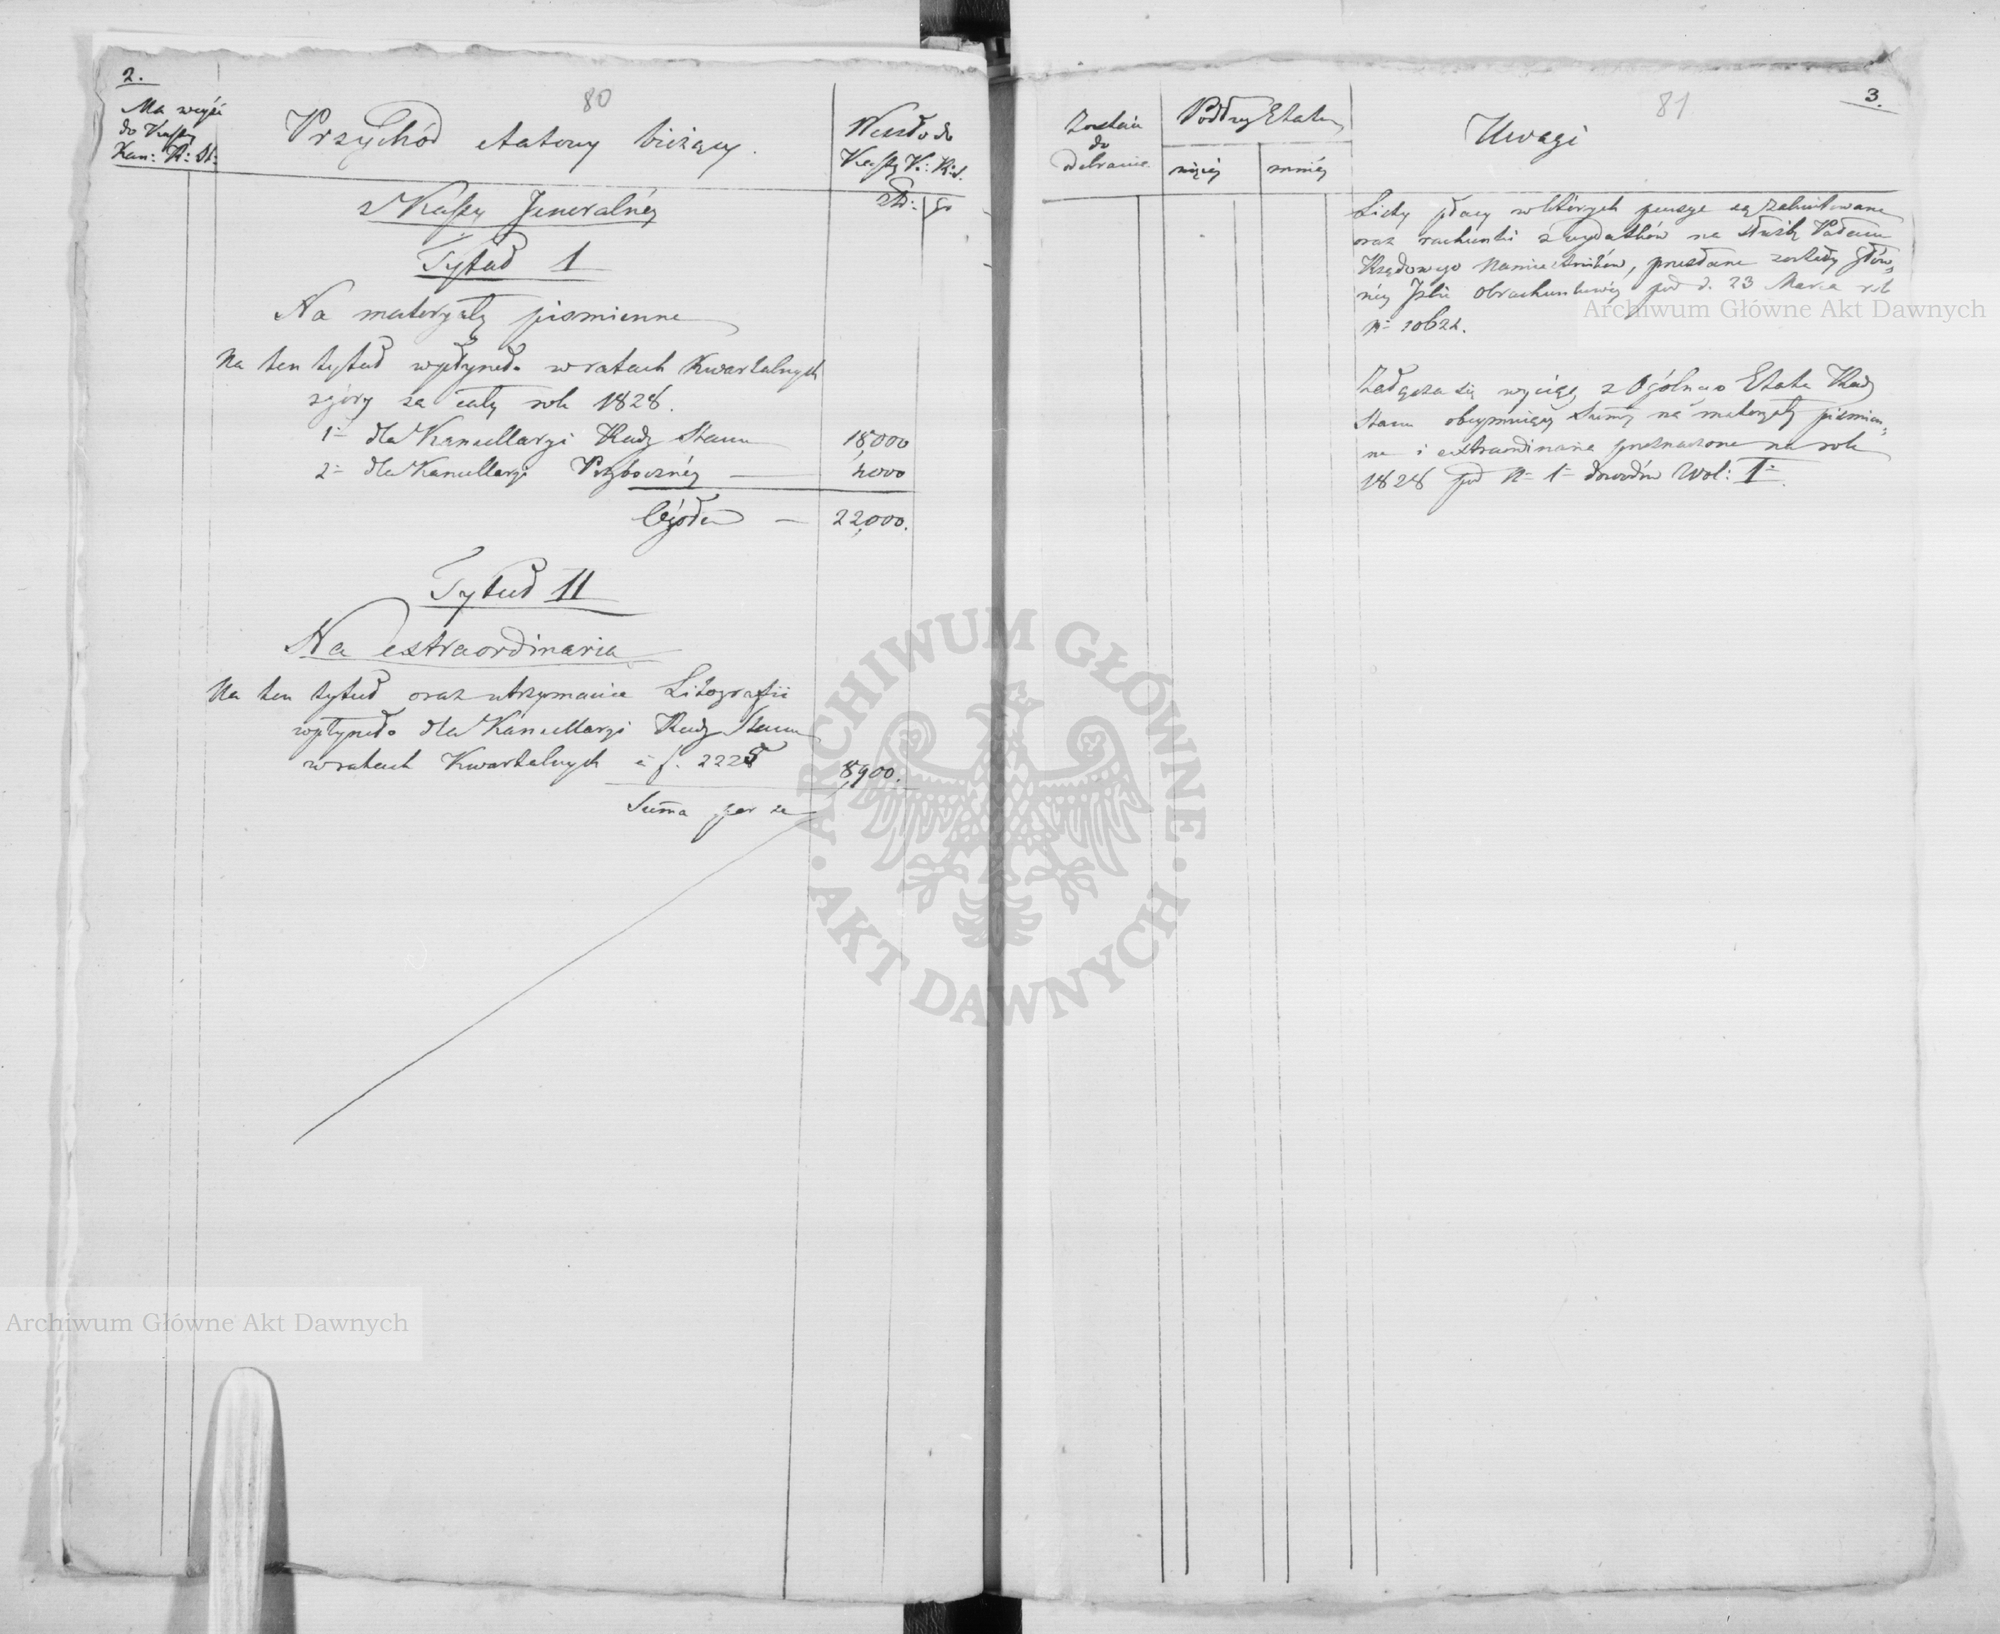 2.
80
Ma weyść
do Kassy
Kan: R: St:
Przychód etatowy bieżący.
Weszło do
Kassy K: R: S.
Złp: gr
z Kassy Jeneralnéy
Tytuł I
Na materyały piśmienne
Na ten tytuł wpłynęło w ratach kwartalnych
zgóry za cały rok 1828.
1º dla Kancellaryi Rady Stanu 18,000
2º dla Kancellaryi Przybocznéy — 4000
Ogółem — 22,000.
Tytuł II
Na extraordinaria
Na ten tytuł oraz utrzymanie Litografii
wpłynęło dla Kancellaryi Rady Stanu
w ratach Kwartalnych à f. 2225 8,900.
Suma per se
81
3.
Zostaie
do
odebrania
Podług Etatu
więcéy
mniéy
Uwagi
Listy płacy w których pensye są zakwitowane
oraz rachunki z wydatków na służbę Pałacu
Rządowego Namiestników, przesłane zostały Głów=
néy Izbie Obrachunkowéy pod d. 23 Marca rb
Nº 10622.
Załącza się wyciąg z Ogólnego Etatu Rady
Stanu obeymuiący Summy na materyały piśmien=
ne i extraordinaria przeznaczone na rok
1828 pod Nº 1º dowodów Vol: I.
Archiwum Główne Akt Dawnych
ARCHIWUM GŁÓWNE · AKT DAWNYCH ·
Archiwum Główne Akt Dawnych